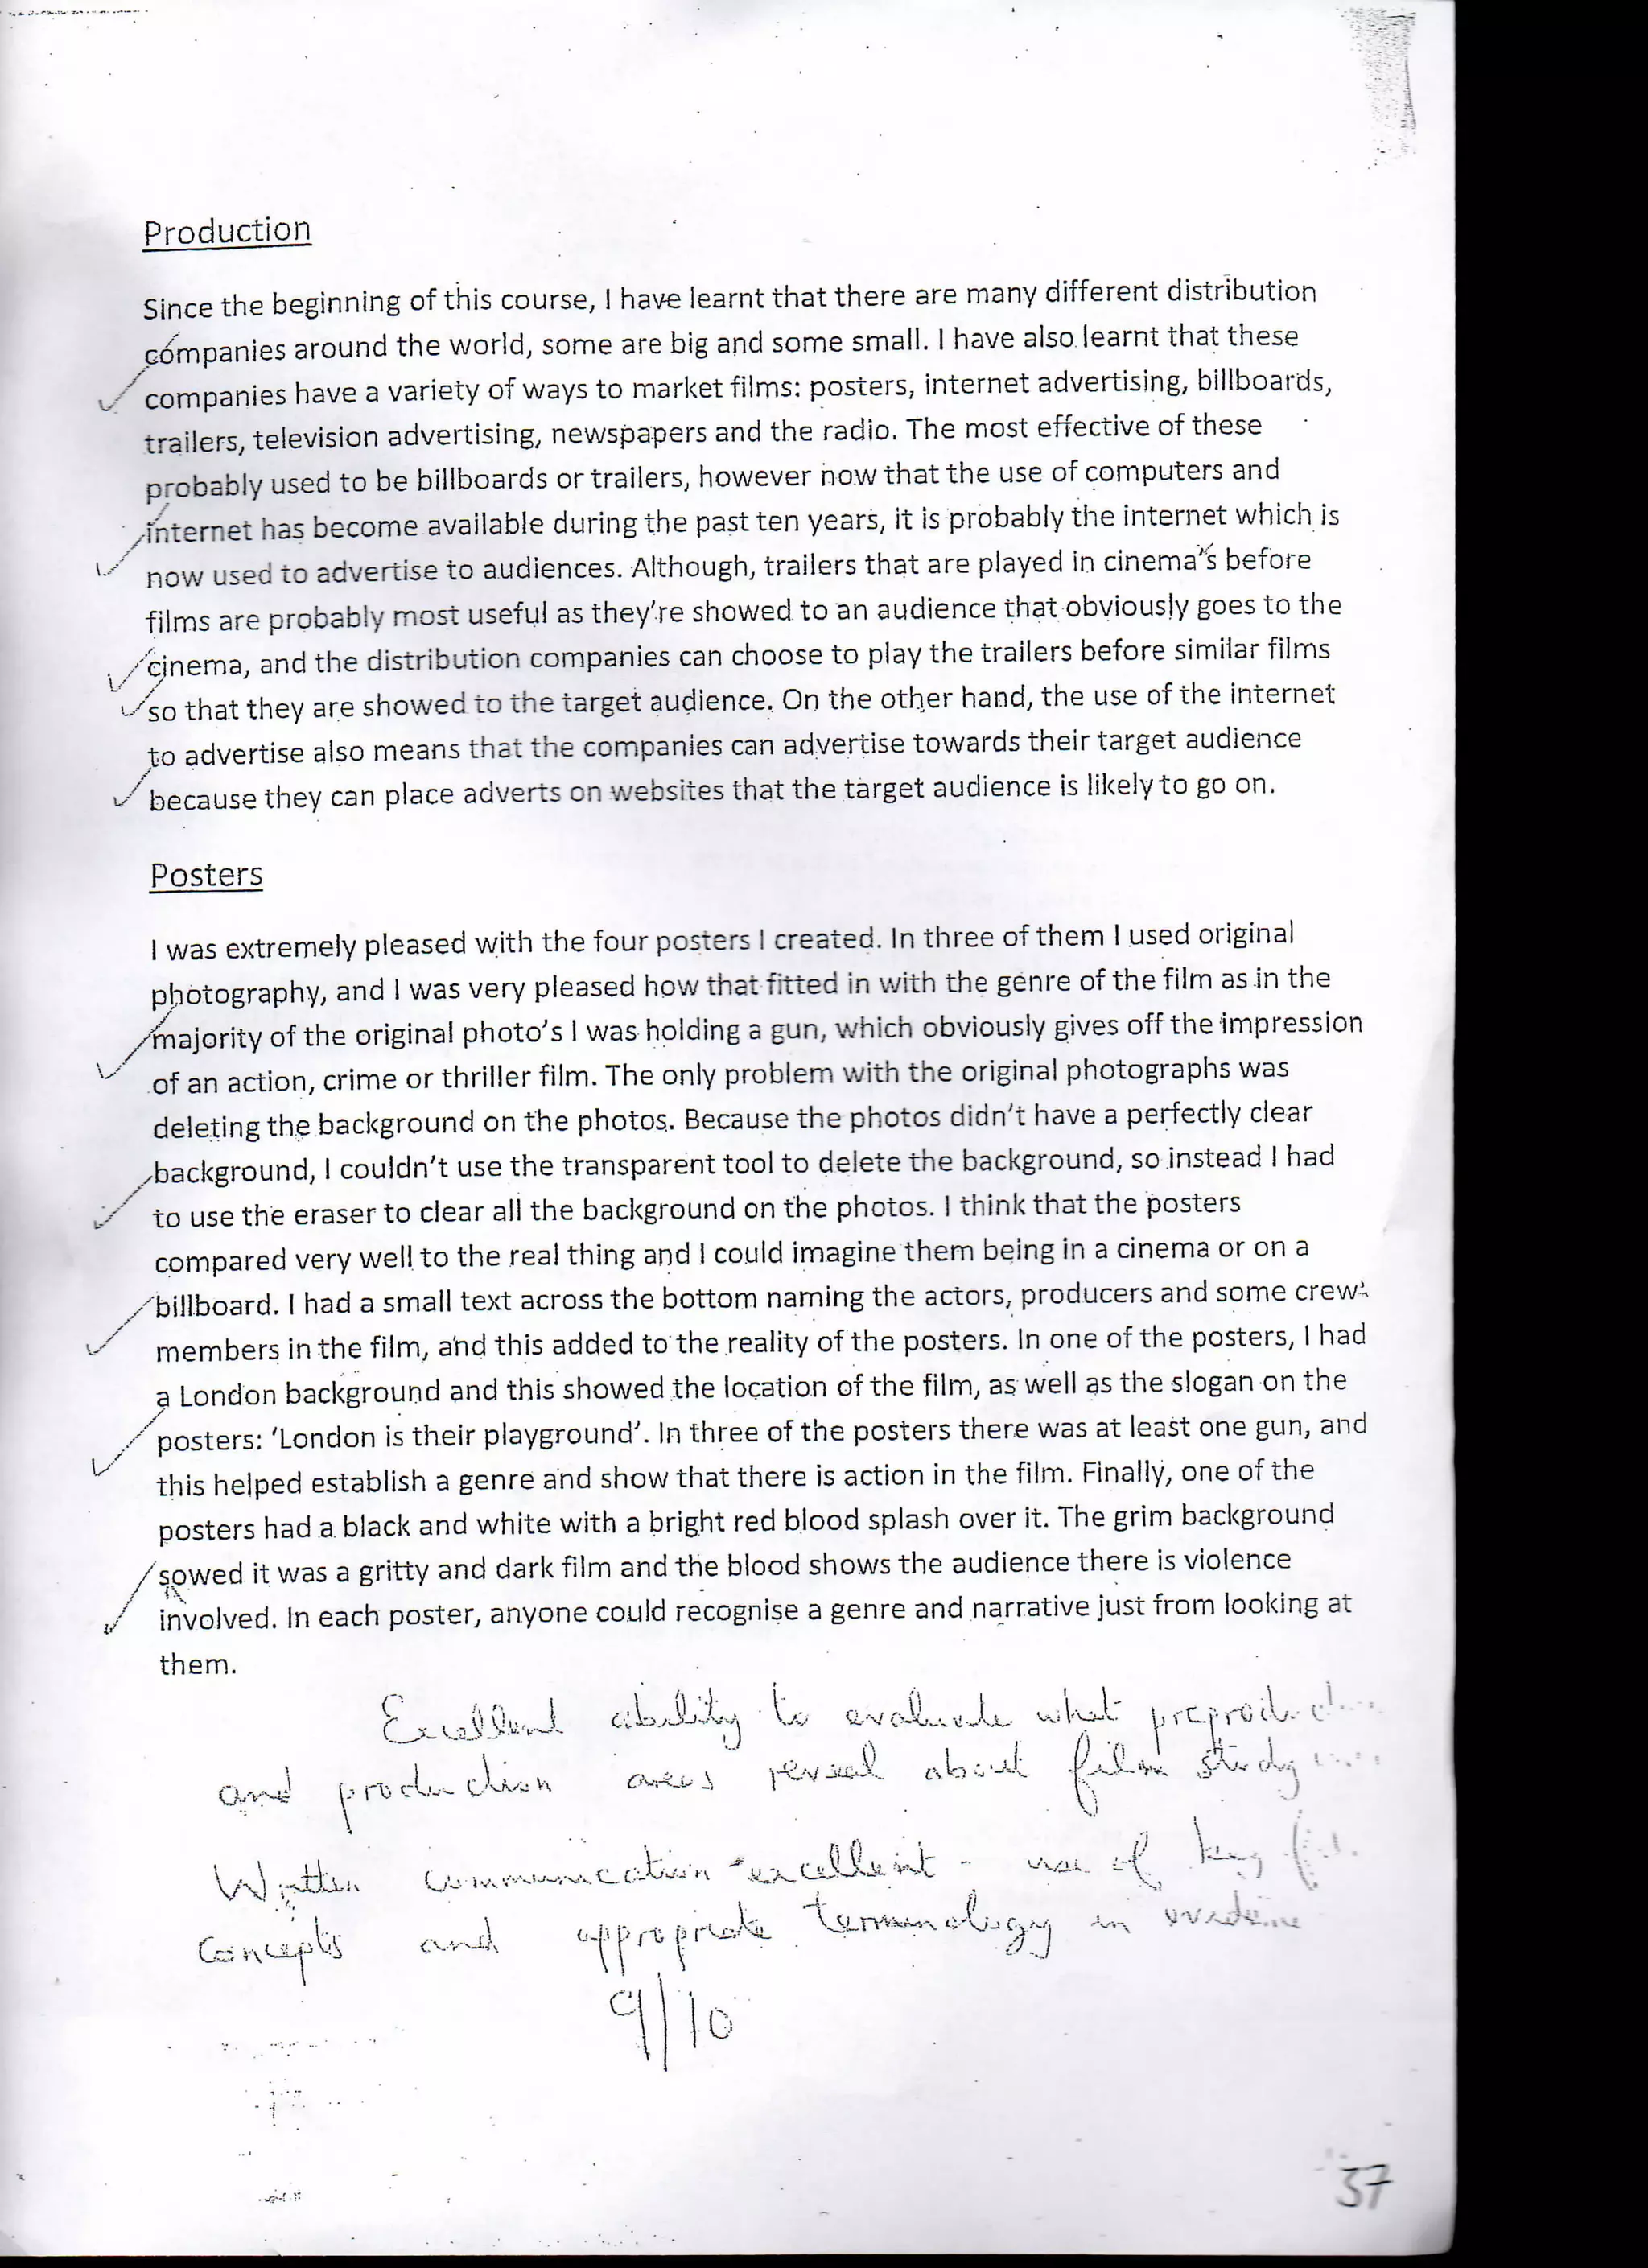 Production
Since the beginning of this course, I have learnt that there are many different distribution
companies around the world, some are big and some small. I have also learnt that these
companies have a variety of ways to market films: posters, internet advertising, billboards,
trailers, television advertising, newspapers and the radio. The most effective of these
probably used to be billboards or trailers, however now that the use of computers and
internet has become available during the past ten years, it is probably the internet which is
now used to advertise to audiences. Although, trailers that are played in cinema's before
films are probably most useful as they're showed to an audience that obviously goes to the
cinema, and the distribution companies can choose to play the trailers before similar films
so that they are showed to the target audience. On the other hand, the use of the internet
to advertise also means that the companies can advertise towards their target audience
because they can place adverts on websites that the target audience is likely to go on.
Posters
I was extremely pleased with the four posters I created. In three of them I used original
photography, and I was very pleased how that fitted in with the genre of the film as in the
majority of the original photo's I was holding a gun, which obviously gives off the impression
of an action, crime or thriller film. The only problem with the original photographs was
deleting the background on the photos. Because the photos didn't have a perfectly clear
background, I couldn't use the transparent tool to delete the background, so instead I had
to use the eraser to clear all the background on the photos. I think that the posters
compared very well to the real thing and I could imagine them being in a cinema or on a
billboard. I had a small text across the bottom naming the actors, producers and some crew
members in the film, and this added to the reality of the posters. In one of the posters, I had
a London background and this showed the location of the film, as well as the slogan on the
posters: 'London is their playground'. In three of the posters there was at least one gun, and
this helped establish a genre and show that there is action in the film. Finally, one of the
posters had a black and white with a bright red blood splash over it. The grim background
sowed it was a gritty and dark film and the blood shows the audience there is violence
involved. In each poster, anyone could recognise a genre and narrative just from looking at
them.
Excellent ability to evaluate what
and production areas reveal about film study
Written communication excellent - use of key
concepts and appropriate terminology in
9/10
37